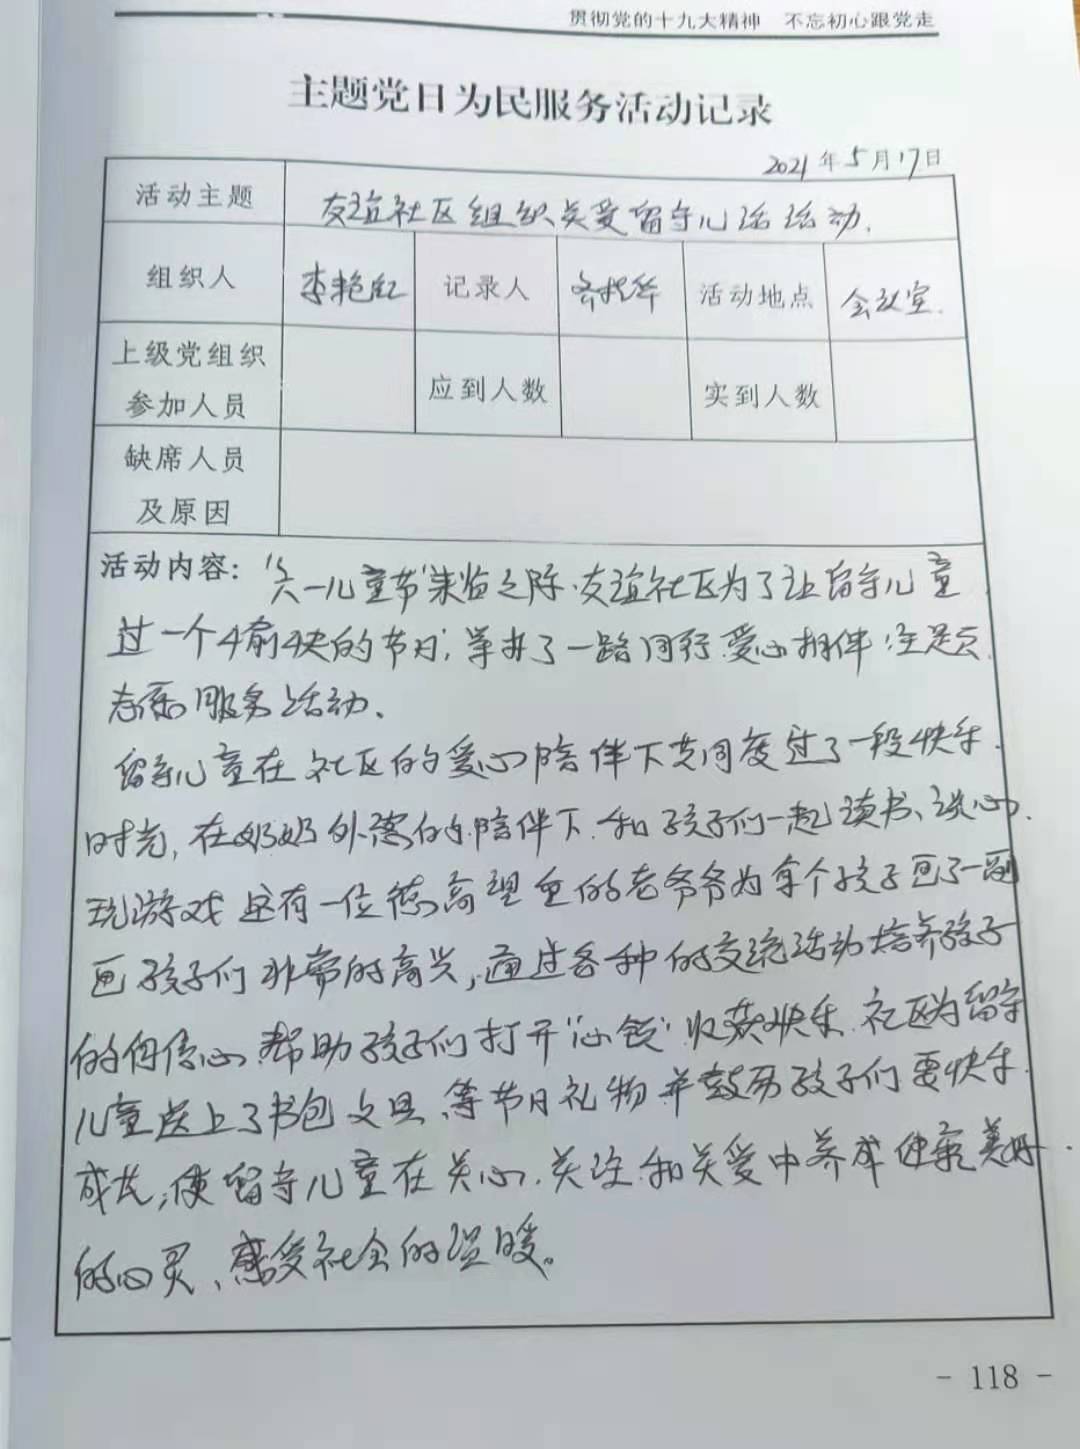 贯彻党的十九大精神 不忘初心跟党走
主题党日为民服务活动记录
2021年5月17日
活动主题 友谊社区组织关爱留守儿活动.
组织人 李艳红 记录人 活动地点 会议室.
上级党组织
参加人员 应到人数 实到人数
缺席人员
及原因
活动内容: "六一儿童节"来临之际.友谊社区为了让留守儿童
过一个愉快的节日,举办了一路同行 爱心相伴 主题
志愿服务活动、
留守儿童在社区的爱心陪伴下共同度过了一段快乐.
时光,在奶奶 的陪伴下.和孩子们一起读书、谈心.
玩游戏 还有一位德高望重的老爷爷为每个孩子画了一副
画 孩子们非常的高兴,通过各种的交流活动培养孩子
的自信心.帮助孩子们打开"心锁"收获快乐.社区为留守
儿童送上了书包 文具、等节日礼物 并鼓励孩子们要快乐.
成长,使留守儿童在关心.关注.和关爱中养成健康美好.
的心灵、感受社会的温暖。
- 118 -